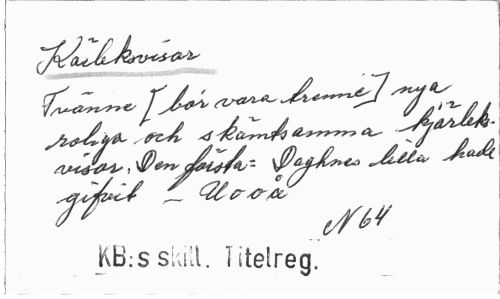 Kärleksvisor
Tvänne [bör vara trenne] nya
roliga och skämtsamma kjärleks-
visor. Den första: Daghnes lilla hade
gifvit - U o o å
N 64
KB:s skill. Titelreg.